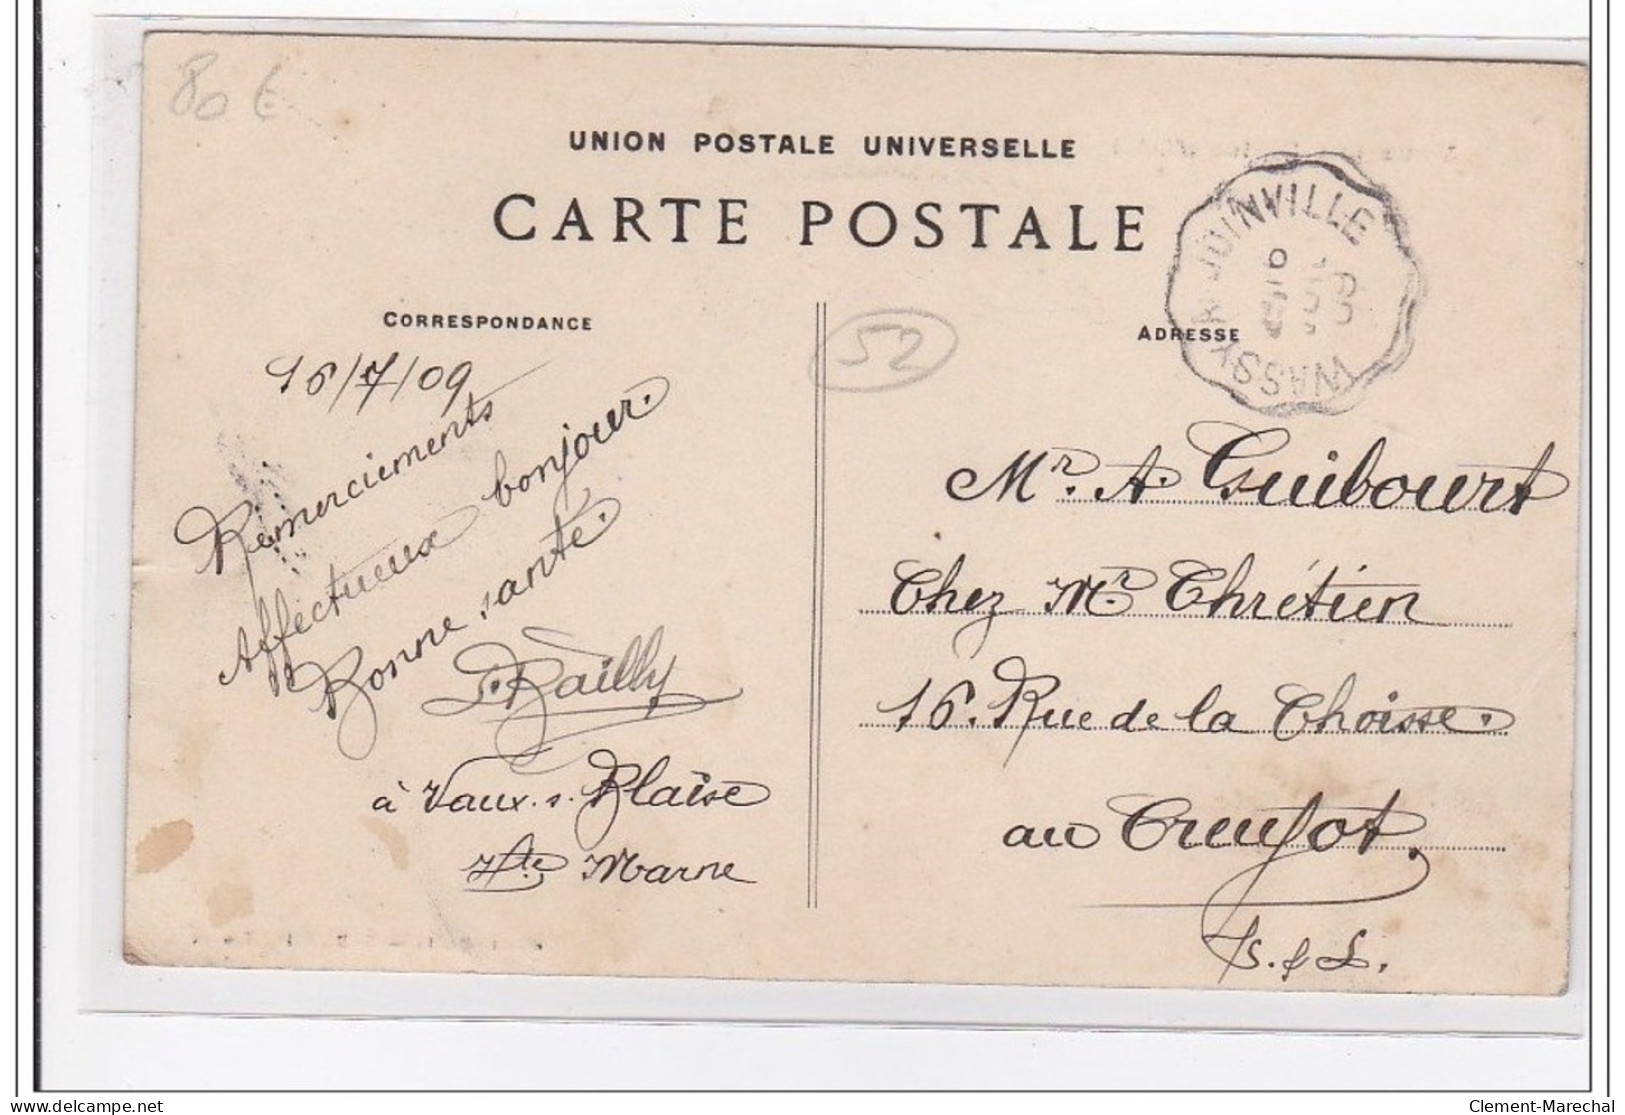 80 €
UNION POSTALE UNIVERSELLE
CARTE POSTALE
JOINVILLE
WASSY
CORRESPONDANCE
52
ADRESSE
16/7/09
Remerciements
Affectueux bonjour.
Bonne santé.
Bailly
à Vaux-s-Blaise
Hte Marne
Mr. A. Guibourt
Chez Mr Chrétien
16. Rue de la Choisse.
au Creusot,
S. & L.
delcampe.net
Clement-Marechal